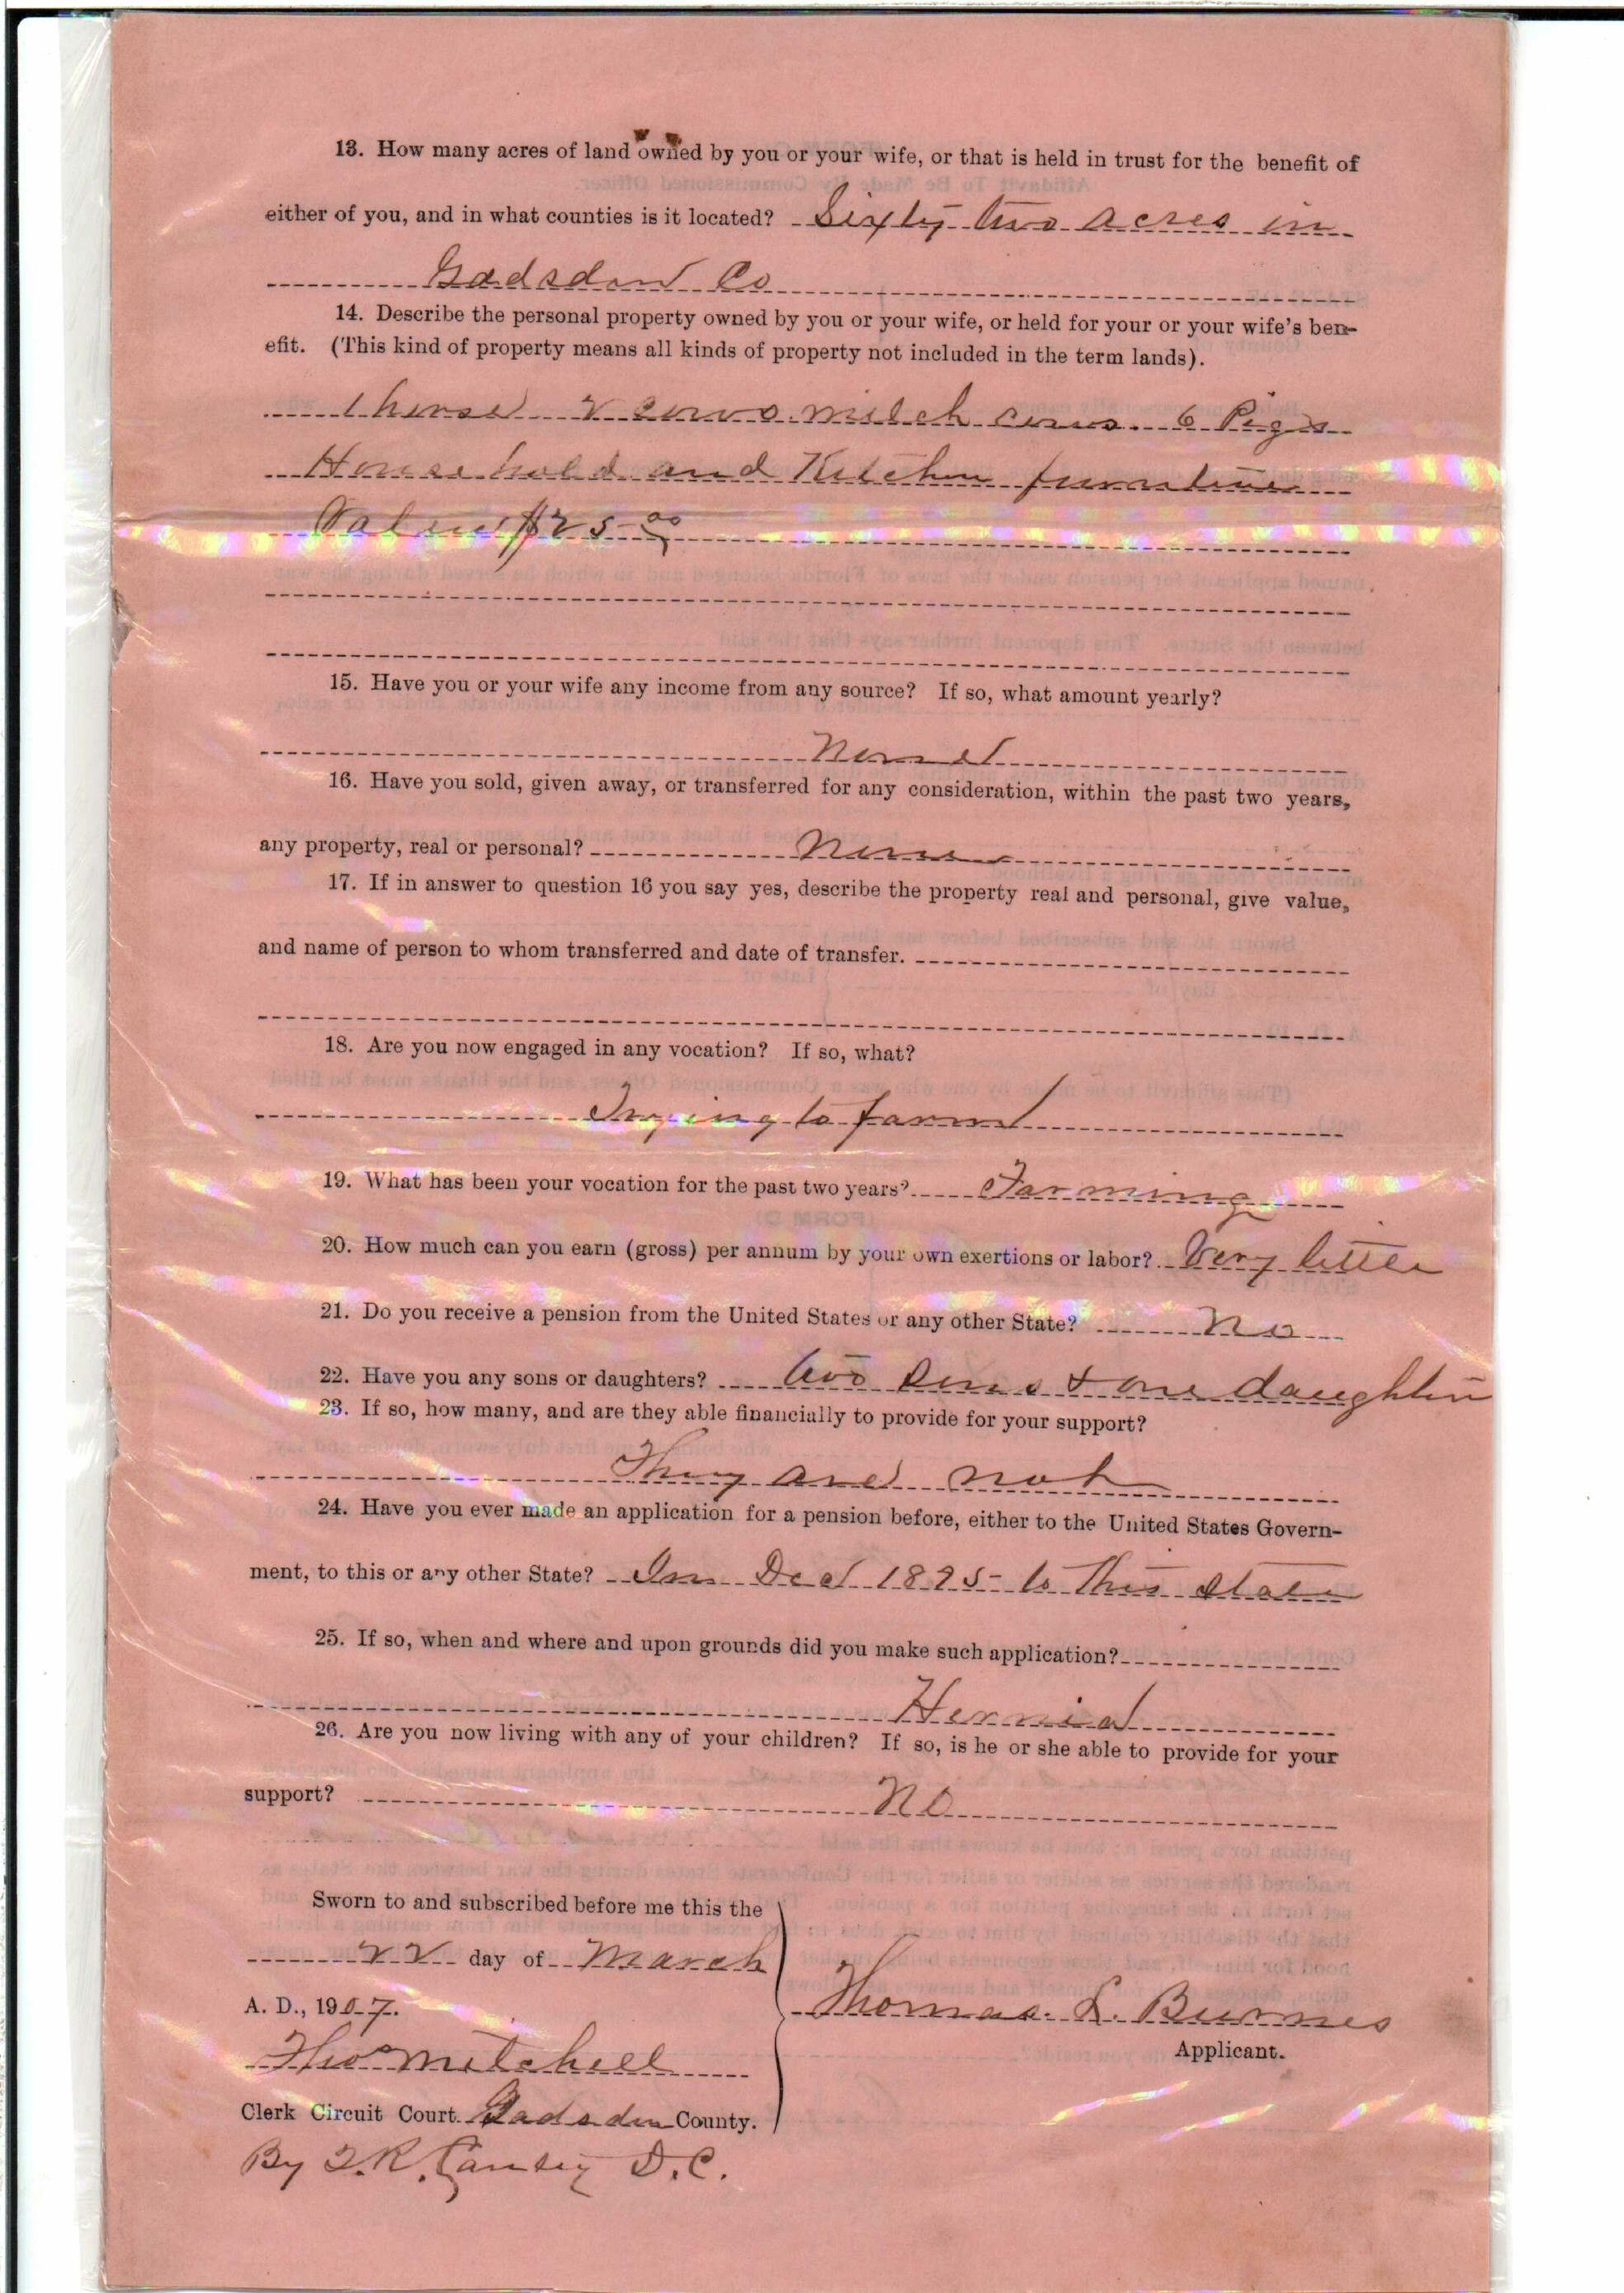 13. How many acres of land owned by you or your wife, or that is held in trust for the benefit of
either of you, and in what counties is it located? Sixty two acres in
Gadsden Co
14. Describe the personal property owned by you or your wife, or held for your or your wife's ben-
efit. (This kind of property means all kinds of property not included in the term lands).
1 horse 2 cows milch cows. 6 Pigs
Household and Kitchen furniture
Value $25.00
15. Have you or your wife any income from any source? If so, what amount yearly?
None
16. Have you sold, given away, or transferred for any consideration, within the past two years,
any property, real or personal? None
17. If in answer to question 16 you say yes, describe the property real and personal, give value,
and name of person to whom transferred and date of transfer.
18. Are you now engaged in any vocation? If so, what?
Trying to farm
19. What has been your vocation for the past two years? Farming
20. How much can you earn (gross) per annum by your own exertions or labor? Very little
21. Do you receive a pension from the United States or any other State? No
22. Have you any sons or daughters? two sons & one daughter
23. If so, how many, and are they able financially to provide for your support?
They are not
24. Have you ever made an application for a pension before, either to the United States Govern-
ment, to this or any other State? In Dec 1895 to this state
25. If so, when and where and upon grounds did you make such application?
Hernia
26. Are you now living with any of your children? If so, is he or she able to provide for your
support? No
Sworn to and subscribed before me this the
22 day of March
A. D., 1907.
Thos Mitchell
Clerk Circuit Court Gadsden County.
By R. D. C.
Thomas. L. Burnes
Applicant.